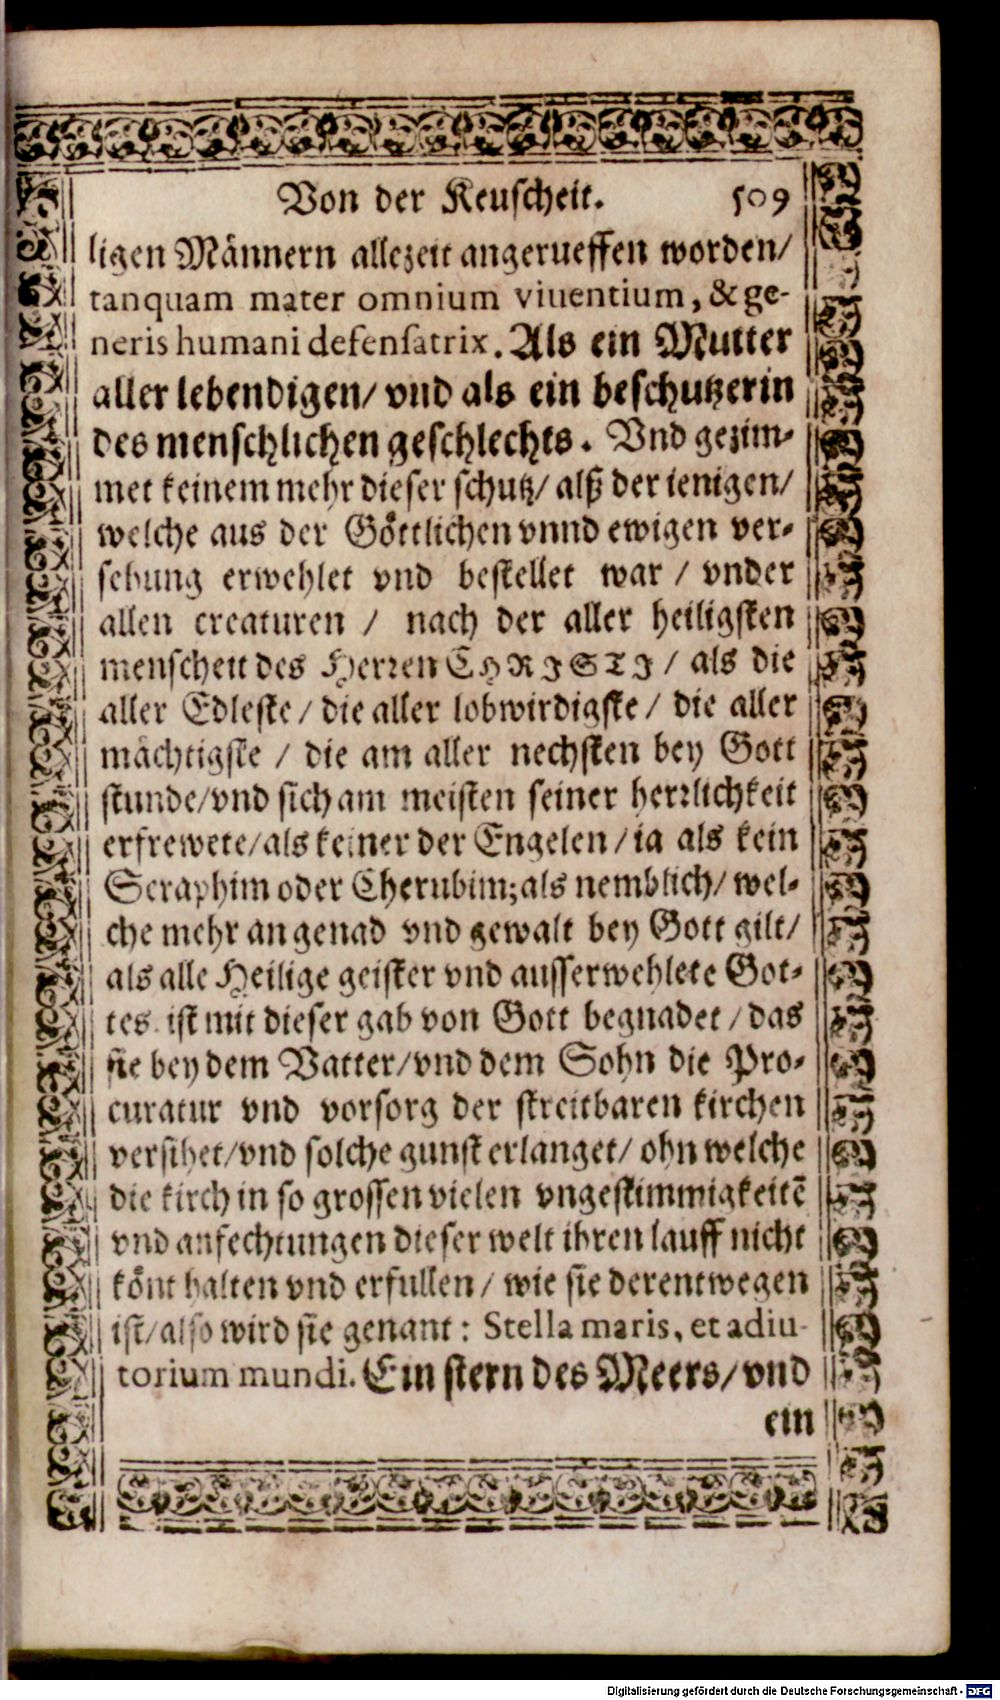 Von der Keuscheit. 509
ligen Männern allezeit angerueffen worden/
tanquam mater omnium viuentium, & ge-
neris humani defensatrix. Als ein Mutter
aller lebendigen/ vnd als ein beschutzerin
des menschlichen geschlechts. Vnd gezim-
met keinem mehr dieser schutz/ alß der ienigen/
welche aus der Göttlichen vnnd ewigen ver-
sehung erwehlet vnd bestellet war / vnder
allen creaturen / nach der aller heiligsten
menscheit des Herren CHRISTI / als die
aller Edleste / die aller lobwirdigste / die aller
mächtigste / die am aller nechsten bey Gott
stunde/vnd sich am meisten seiner herrlichkeit
erfrewete/als keiner der Engelen / ia als kein
Seraphim oder Cherubim; als nemblich/ wel-
che mehr an genad vnd gewalt bey Gott gilt/
als alle Heilige geister vnd ausserwehlete Got-
tes. ist mit dieser gab von Gott begnadet / das
sie bey dem Vatter/vnd dem Sohn die Pro-
curatur vnd vorsorg der streitbaren kirchen
versihet/vnd solche gunst erlanget/ ohn welche
die kirch in so grossen vielen vngestimmigkeitẽ
vnd anfechtungen dieser welt ihren lauff nicht
könt halten vnd erfullen / wie sie derentwegen
ist/also wird sie genant : Stella maris, et adiu-
torium mundi. Ein stern des Meers/ vnd
ein
Digitalisierung gefördert durch die Deutsche Forschungsgemeinschaft - DFG